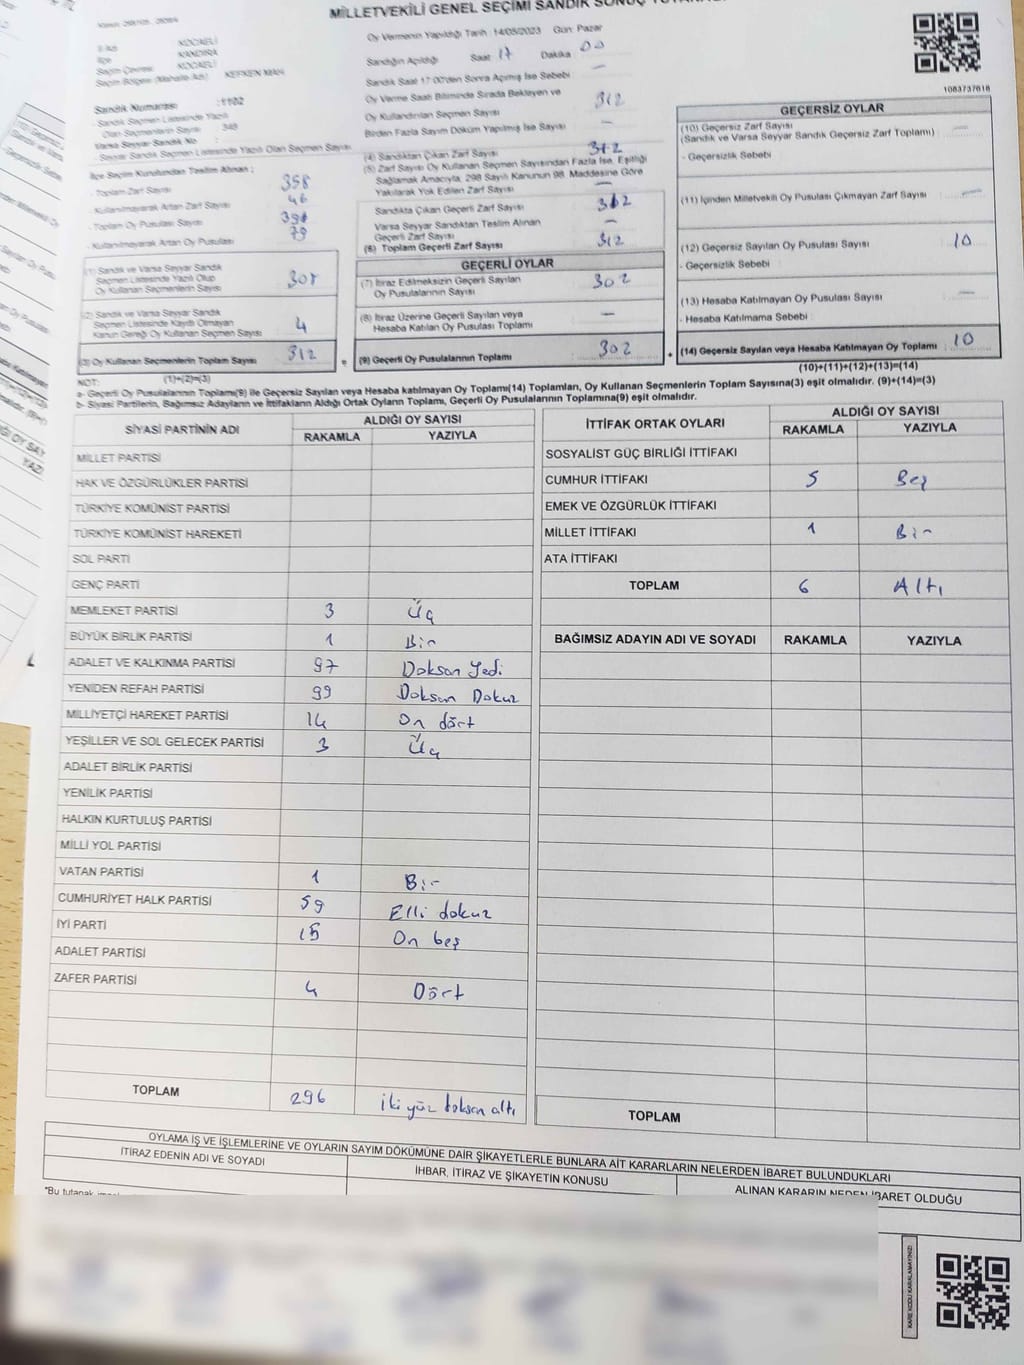 MİLLETVEKİLİ GENEL SEÇİMİ SANDIK SONUÇ
İl Adı KOCAELİ
İlçe KANDIRA
Seçim Çevresi KOCAELİ
Seçim Bölgesi (Mahalle Adı) KEFKEN MAH
Sandık Numarası :1102
- Sandık Seçmen Listesinde Yazılı
Olan Seçmenlerin Sayısı : 348
Varsa Seyyar Sandık No :
- Seyyar Sandık Seçmen Listesinde Yazılı Olan Seçmen Sayısı
İlçe Seçim Kurulundan Teslim Alınan ;
- Toplam Zarf Sayısı 358
- Kullanılmayarak Artan Zarf Sayısı 46
- Toplam Oy Pusulası Sayısı
- Kullanılmayarak Artan Oy Pusulası 79
(1) Sandık ve Varsa Seyyar Sandık
Seçmen Listesinde Yazılı Olup
Oy Kullanan Seçmenlerin Sayısı 308
(2) Sandık ve Varsa Seyyar Sandık
Seçmen Listesinde Kayıtlı Olmayan
Kanun Gereği Oy Kullanan Seçmen Sayısı 4
(3) Oy Kullanan Seçmenlerin Toplam Sayısı 312
Oy Vermenin Yapıldığı Tarih 14/05/2023 Gün: Pazar
Sandığın Açıldığı Saat 17 Dakika 00
Sandık Saat 17:00'den Sonra Açılmış İse Sebebi —
Oy Verme Saati Bitiminde Sırada Bekleyen ve
Oy Kullandırılan Seçmen Sayısı 312
Birden Fazla Sayım Döküm Yapılmış İse Sayısı —
(4) Sandıktan Çıkan Zarf Sayısı 312
(5) Zarf Sayısı Oy Kullanan Seçmen Sayısından Fazla İse, Eşitliği
Sağlamak Amacıyla, 298 Sayılı Kanunun 98. Maddesine Göre
Yakılarak Yok Edilen Zarf Sayısı —
Sandıkta Çıkan Geçerli Zarf Sayısı 312
Varsa Seyyar Sandıktan Teslim Alınan
Geçerli Zarf Sayısı —
(6) Toplam Geçerli Zarf Sayısı 312
GEÇERLİ OYLAR
(7) İtiraz Edilmeksizin Geçerli Sayılan
Oy Pusulalarının Sayısı 302
(8) İtiraz Üzerine Geçerli Sayılan veya
Hesaba Katılan Oy Pusulası Toplamı —
= (9) Geçerli Oy Pusulalarının Toplamı 302
1083737618
GEÇERSİZ OYLAR
(10) Geçersiz Zarf Sayısı
(Sandık ve Varsa Seyyar Sandık Geçersiz Zarf Toplamı) —
- Geçersizlik Sebebi
(11) İçinden Milletvekili Oy Pusulası Çıkmayan Zarf Sayısı —
(12) Geçersiz Sayılan Oy Pusulası Sayısı 10
- Geçersizlik Sebebi
(13) Hesaba Katılmayan Oy Pusulası Sayısı —
- Hesaba Katılmama Sebebi :
+ (14) Geçersiz Sayılan veya Hesaba Katılmayan Oy Toplamı 10
(1)+(2)=(3)
(10)+(11)+(12)+(13)=(14)
NOT:
a- Geçerli Oy Pusulalarının Toplamı(9) ile Geçersiz Sayılan veya Hesaba katılmayan Oy Toplamı(14) Toplamları, Oy Kullanan Seçmenlerin Toplam Sayısına(3) eşit olmalıdır. (9)+(14)=(3)
b- Siyasi Partilerin, Bağımsız Adayların ve İttifakların Aldığı Ortak Oyların Toplamı, Geçerli Oy Pusulalarının Toplamına(9) eşit olmalıdır.
SİYASİ PARTİNİN ADI ALDIĞI OY SAYISI
RAKAMLA YAZIYLA
MİLLET PARTİSİ
HAK VE ÖZGÜRLÜKLER PARTİSİ
TÜRKİYE KOMÜNİST PARTİSİ
TÜRKİYE KOMÜNİST HAREKETİ
SOL PARTİ
GENÇ PARTİ
MEMLEKET PARTİSİ 3 Üç
BÜYÜK BİRLİK PARTİSİ 1 Bir
ADALET VE KALKINMA PARTİSİ 97 Doksan Yedi
YENİDEN REFAH PARTİSİ 99 Doksan Dokuz
MİLLİYETÇİ HAREKET PARTİSİ 14 On dört
YEŞİLLER VE SOL GELECEK PARTİSİ 3 Üç
ADALET BİRLİK PARTİSİ
YENİLİK PARTİSİ
HALKIN KURTULUŞ PARTİSİ
MİLLİ YOL PARTİSİ
VATAN PARTİSİ 1 Bir
CUMHURİYET HALK PARTİSİ 59 Elli dokuz
İYİ PARTİ 15 On beş
ADALET PARTİSİ
ZAFER PARTİSİ 4 Dört
TOPLAM 296 İki yüz doksan altı
İTTİFAK ORTAK OYLARI ALDIĞI OY SAYISI
RAKAMLA YAZIYLA
SOSYALİST GÜÇ BİRLİĞİ İTTİFAKI
CUMHUR İTTİFAKI 5 Beş
EMEK VE ÖZGÜRLÜK İTTİFAKI
MİLLET İTTİFAKI 1 Bir
ATA İTTİFAKI
TOPLAM 6 Altı
BAĞIMSIZ ADAYIN ADI VE SOYADI RAKAMLA YAZIYLA
TOPLAM
OYLAMA İŞ VE İŞLEMLERİNE VE OYLARIN SAYIM DÖKÜMÜNE DAİR ŞİKAYETLERLE BUNLARA AİT KARARLARIN NELERDEN İBARET BULUNDUKLARI
İTİRAZ EDENİN ADI VE SOYADI
İHBAR, İTİRAZ VE ŞİKAYETİN KONUSU
ALINAN KARARIN NEDEN İBARET OLDUĞU
*Bu tutanak
KARE KODU KARALAMAYINIZ!